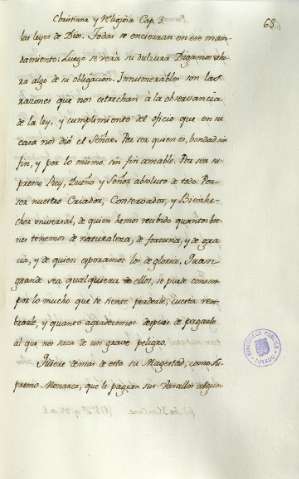 Christiana y Religiosa Cap. 3
68
las leyes de Dios. Todas se encierran en ese man-
damiento. Luego se verá su dulzura. Digamos aho-
ra algo de su obligacion. Innumerables son las
razones que nos estrechan á la observancia
de la ley, y cumplimiento del oficio que en su
casa nos dió el Señor. Por ser quien es, bondad sin
fin, y por lo mismo sin fin amable. Por ser su-
premo Rey, Dueño y Señor absoluto de todo. Por
ser nuestro Criador, Conservador, y Bienhe-
chor universal, de quien hemos recibido quantos bie-
nes tenemos de naturaleza, de fortuna, y de gra-
cia, y de quien esperamos los de gloria. Quan
grande sea qualquiera de ellos, se puede conocer
por lo mucho que se siente perderle, cuesta reco-
brarle, y quanto agradecemos despues de pagarlo
al que nos saca de un grave peligro.
Quiere demas de esto su Magestad, como Su-
premo Monarca, que le paguen sus Vasallos algun